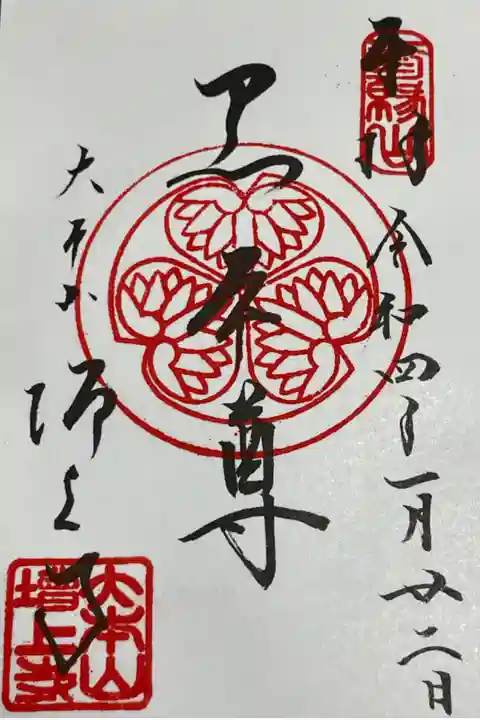 奉拝
令和四年一月廿二日
黒本尊
大本山 増上寺
大本山
増上寺